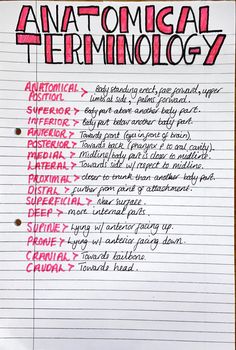 ANATOMICAL
TERMINOLOGY
ANATOMICAL > Body standing erect, face forward, upper
POSITION limbs at side, palms forward.
SUPERIOR > Body part above another body part.
INFERIOR > Body part below another body part.
ANTERIOR > Towards front (eyes in front of brain).
POSTERIOR > Towards back (pharynx P to oral cavity).
MEDIAL > Midline/body part is closer to midline.
LATERAL > Towards side w/ respect to midline.
PROXIMAL > closer to trunk than another body part.
DISTAL > further from point of attachment.
SUPERFICIAL > Near surface.
DEEP > more internal parts.
SUPINE > Lying w/ anterior facing up.
PRONE > Lying w/ anterior facing down.
CRANIAL > Towards tailbone.
CAUDAL > Towards head.